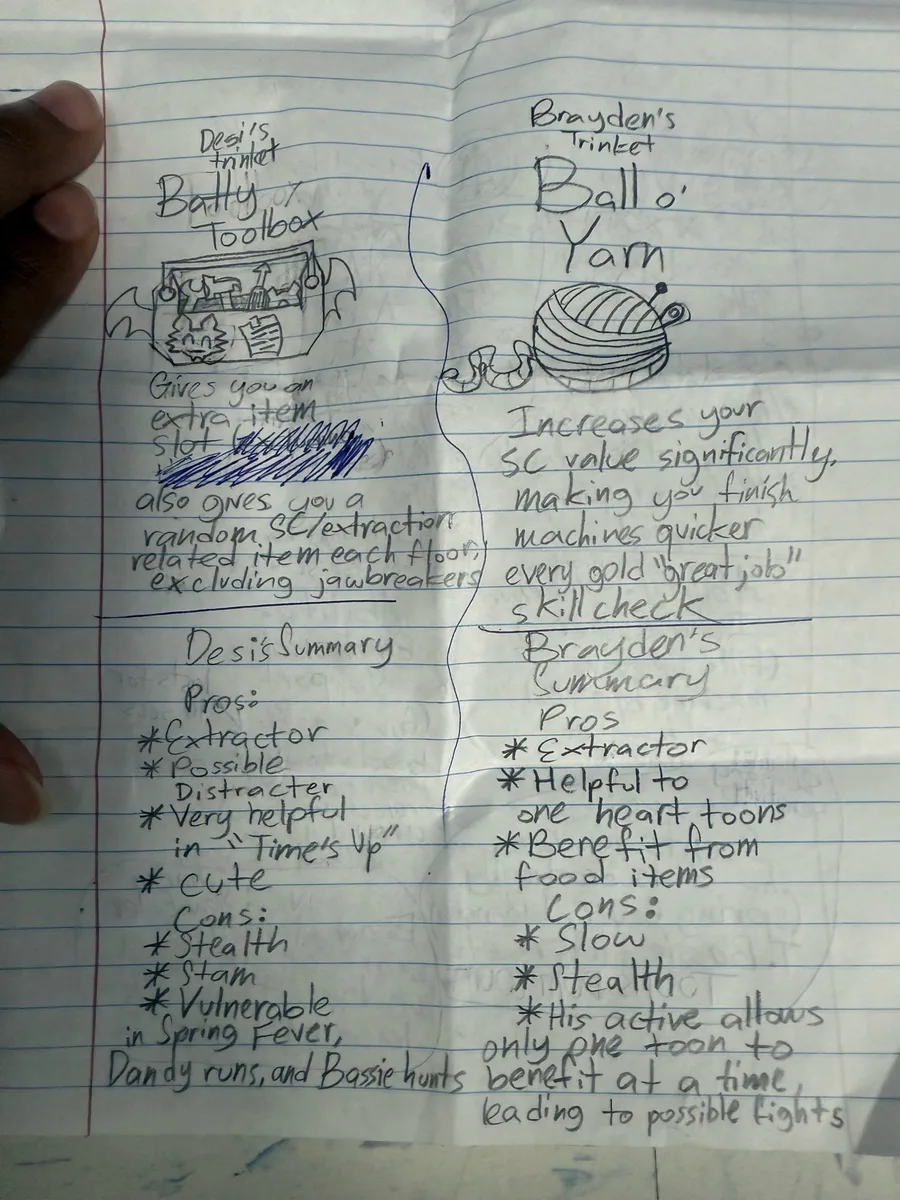 Desi's
trinket
Batty
Toolbox
Gives you an
extra item
slot
also gives you a
random SC/extraction
related item each floor,
excluding jawbreakers
Desi's Summary
Pros:
* Extractor
* Possible
Distracter
* Very helpful
in "Time's Up"
* Cute
Cons:
* Stealth
* Stam
* Vulnerable
in Spring Fever,
Dandy runs, and Bassie hunts
Brayden's
Trinket
Ball o'
Yarn
Increases your
SC value significantly,
making you finish
machines quicker
every gold "great job"
skill check
Brayden's
Summary
Pros
* Extractor
* Helpful to
one heart toons
* Benefit from
food items
Cons:
* Slow
* Stealth
* His active allows
only one toon to
benefit at a time,
leading to possible fights